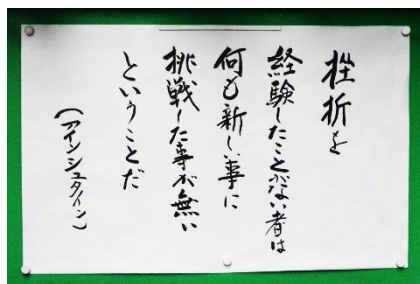 挫折を
経験したことがない者は
何も新しい事に
挑戦した事が無い
ということだ
(アインシュタイン)